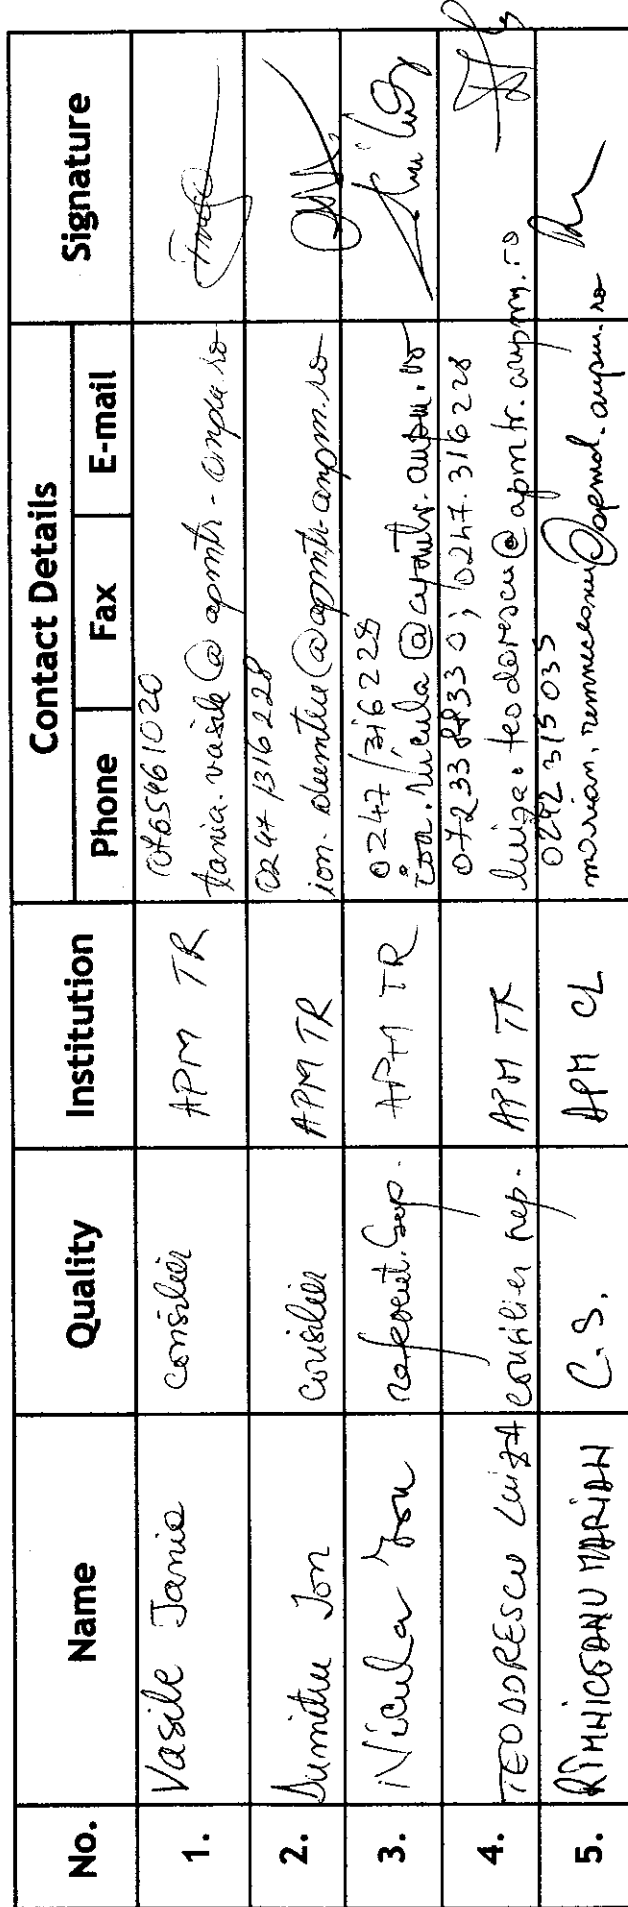 No. Name Quality Institution Contact Details Signature
Phone Fax E-mail
1. Vasile Tania consilier APM TR 0765461020
tania.vasile@apmtr-anpm.ro
2. Dumitru Ion consilier APM TR 0247/316228
ion.dumitru@apmtr.anpm.ro
3. Nicula Ion referent sup. APM TR 0247/316228
ion.nicula@apmtr.anpm.ro
4. TEODORESCU LUIZA consilier rep. APM TR 0247.316228
luiza.teodorescu@apmtr.anpm.ro
5. RIMNICEANU MARIAN C.S. APM CL 0242315035
marian.rimniceanu@apmcl.anpm.ro